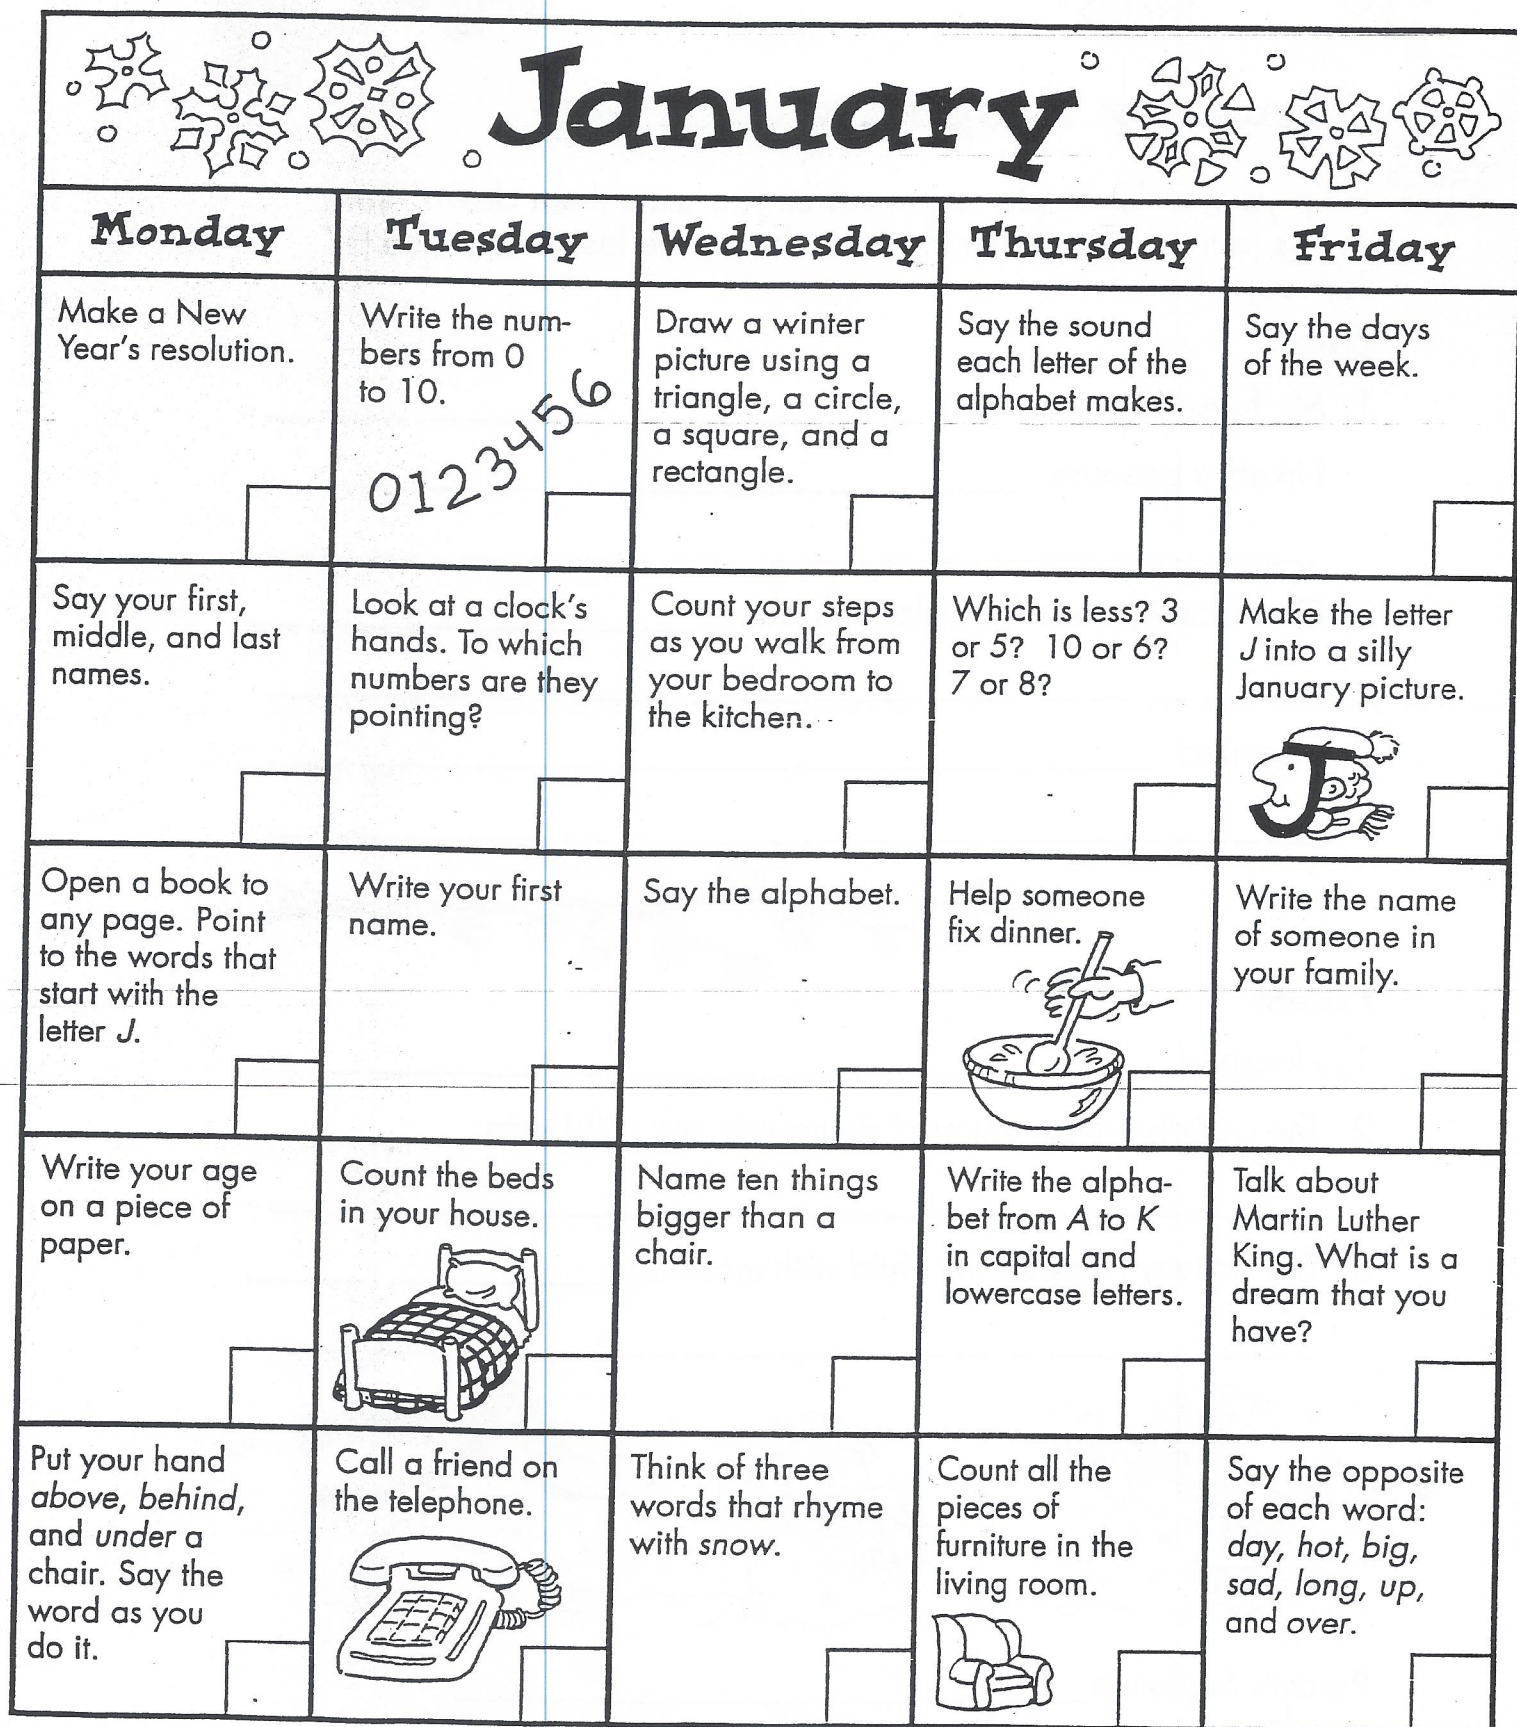 January
Monday
Tuesday
Wednesday
Thursday
Friday
Make a New
Year's resolution.
Write the num-
bers from 0
to 10.
0123456
Draw a winter
picture using a
triangle, a circle,
a square, and a
rectangle.
Say the sound
each letter of the
alphabet makes.
Say the days
of the week.
Say your first,
middle, and last
names.
Look at a clock's
hands. To which
numbers are they
pointing?
Count your steps
as you walk from
your bedroom to
the kitchen.
Which is less? 3
or 5? 10 or 6?
7 or 8?
Make the letter
J into a silly
January picture.
Open a book to
any page. Point
to the words that
start with the
letter J.
Write your first
name.
Say the alphabet.
Help someone
fix dinner.
Write the name
of someone in
your family.
Write your age
on a piece of
paper.
Count the beds
in your house.
Name ten things
bigger than a
chair.
Write the alpha-
bet from A to K
in capital and
lowercase letters.
Talk about
Martin Luther
King. What is a
dream that you
have?
Put your hand
above, behind,
and under a
chair. Say the
word as you
do it.
Call a friend on
the telephone.
Think of three
words that rhyme
with snow.
Count all the
pieces of
furniture in the
living room.
Say the opposite
of each word:
day, hot, big,
sad, long, up,
and over.